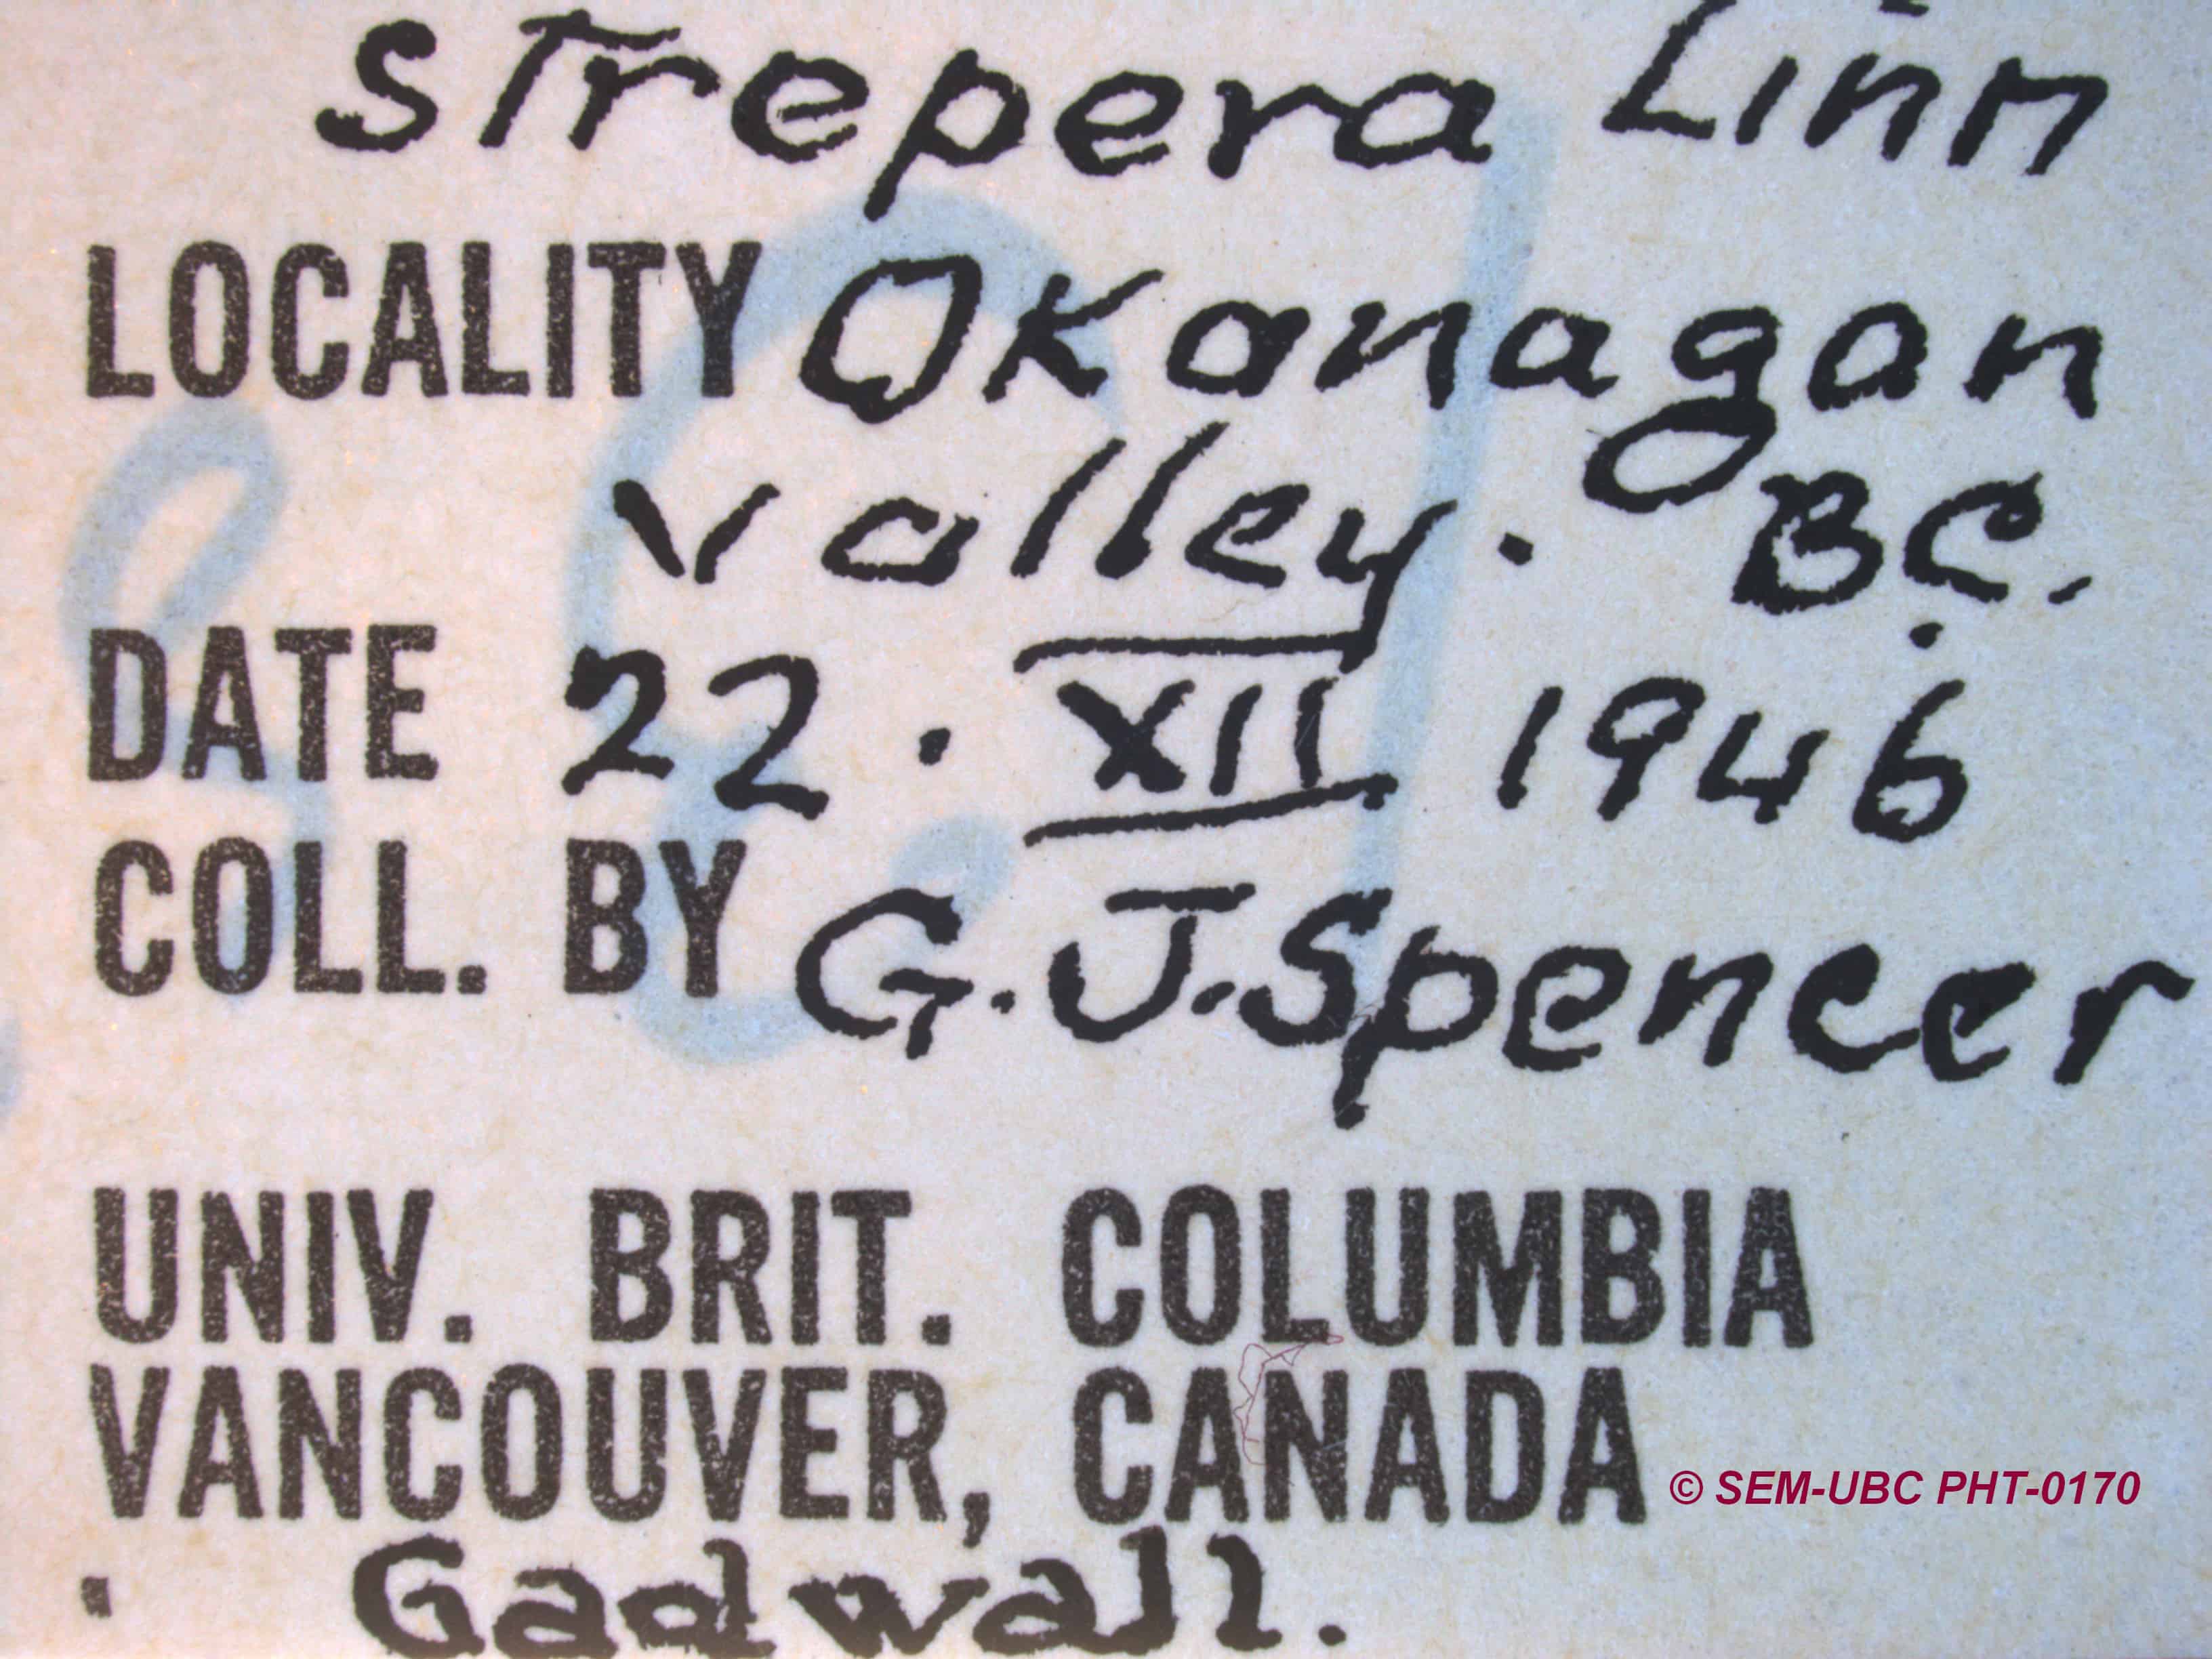 strepera Linn
LOCALITY Okanagan
valley. B.C.
DATE 22. XII. 1946
COLL. BY G.J.Spencer
UNIV. BRIT. COLUMBIA
VANCOUVER, CANADA
© SEM-UBC PHT-0170
. Gadwall.